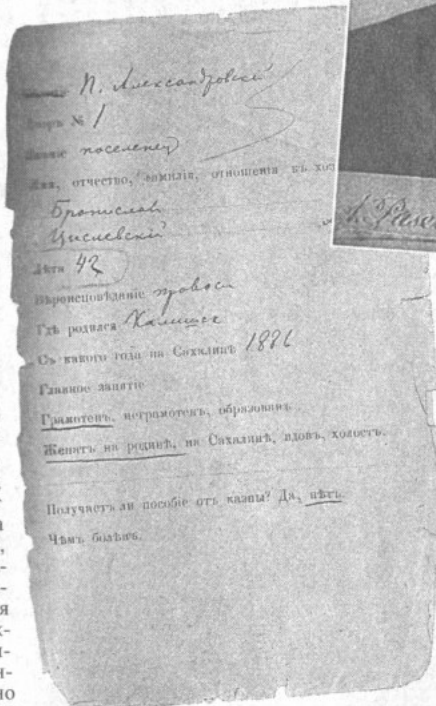 П. Александровскій
Дворъ № 1
Званіе поселенец
Имя, отчество, фамилія, отношенія къ хоз
Бронислав
Цислевскій
Лѣта 42
Вѣроисповѣданіе правосл
Гдѣ родился Калишск
Съ какого года на Сахалинѣ 1886
Главное занятіе
Грамотенъ, неграмотенъ, образованъ.
Женатъ на родинѣ, на Сахалинѣ, вдовъ, холостъ.
Получаетъ ли пособіе отъ казны? Да, нѣтъ.
Чѣмъ боленъ.
я
но